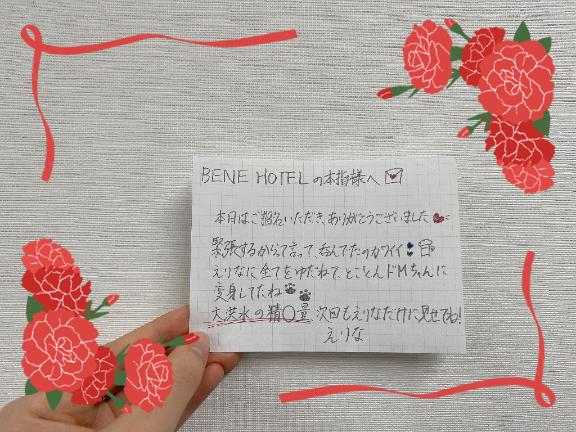 BENE HOTELの本指様へ
本日はご指名いただき、ありがとうございました
緊張するからって言って、なんてたのカワイイ
えりなに全てをゆだねて、とことんドMちゃんに
変身してたね
大洪水の精〇量 次回もえりなだけに見せてね!
えりな